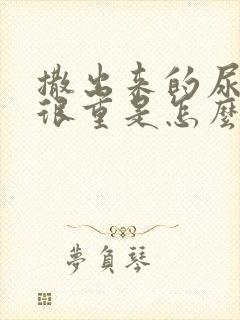 撒出来的尿
很重是怎麼
夢負琴